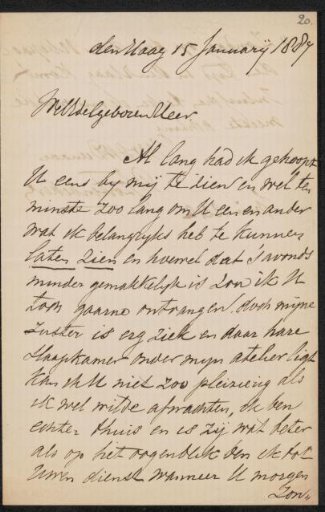 20.
den Haag 15 Januarij 1887
WelEdelgeboren Heer.
Al lang had ik gehoopt
U eens bij mij te zien en wel ten
minste zoo lang om U een en ander
wat ik belangrijks heb te kunnen
laten zien en hoewel dat 's avonds
minder gemakkelijk is zou ik U
toch gaarne ontvangen doch mijne
Zuster is erg ziek en daar hare
slaapkamer onder mijn atelier ligt
kan ik U niet zoo pleizierig als
ik wel wilde afwachten, ik ben
echter thuis en is zij wat beter
als op het oogenblik ben ik tot
Uwen dienst wanneer U morgen
Zon-